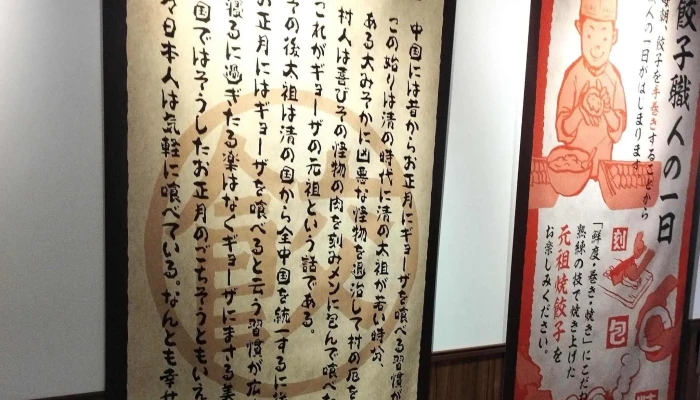 中国には昔からお正月にギョーザを喰べる習慣が
この始りは清の時代に清の太祖が若い時分、
ある大みそかに凶悪な怪物を退治して村の厄を
村人は喜びその怪物の肉を刻みメンに包んで喰べた
これがギョーザの元祖という話である。
その後太祖は清の国から全中国を統一するに
お正月にはギョーザを喰べると云う習慣が広
寝るに過ぎたる楽はなくギョーザにまさる美
国ではそうしたお正月のごちそうともいえ
々日本人は気軽に喰べている。なんとも幸せ
餃子
餃子職人の一日
毎朝、餃子を手巻きすることから
職人の一日がはじまります
刻
包
「鮮度・巻き・焼き」にこだ
熟練の技で焼き上げた
元祖焼餃子を
お楽しみください。